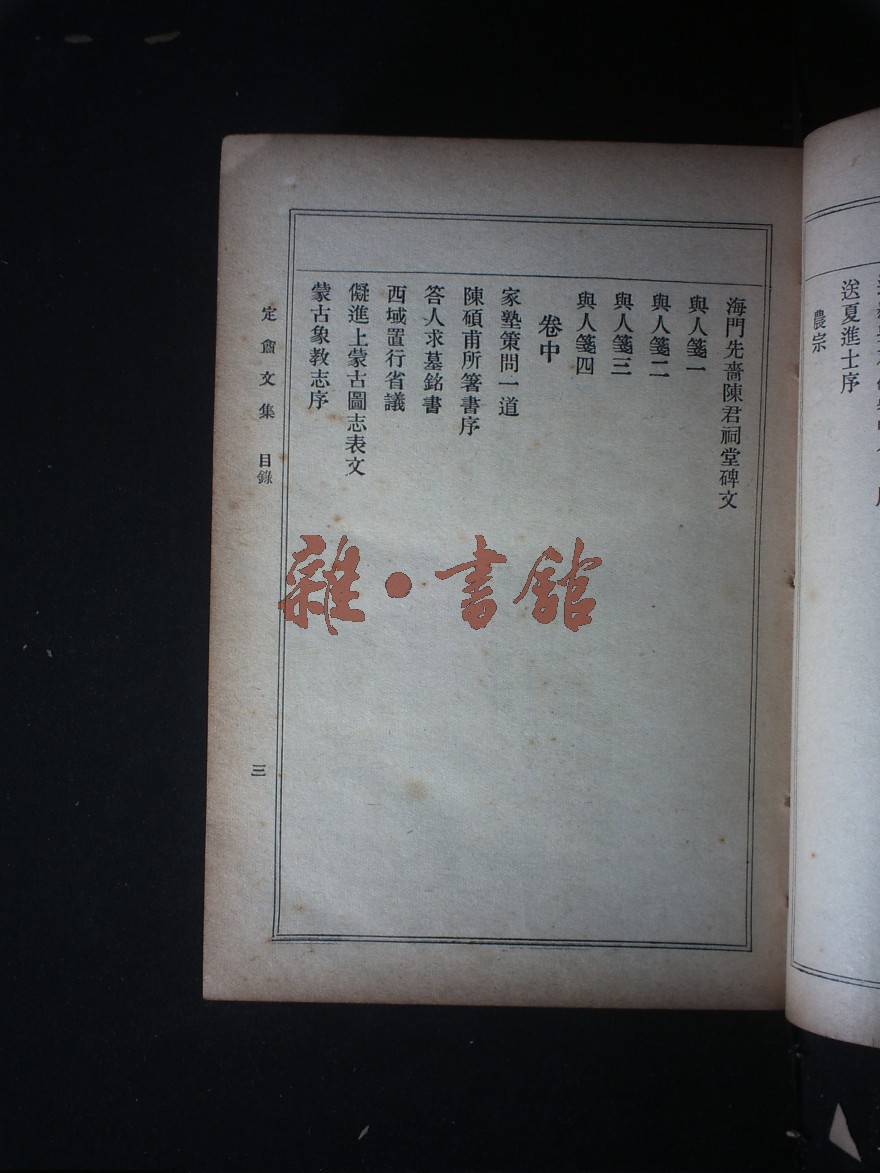 農宗
送夏進士序
海門先嗇陳君祠堂碑文
與人箋一
與人箋二
與人箋三
與人箋四
卷中
家塾策問一道
陳碩甫所箸書序
答人求墓銘書
西域置行省議
儗進上蒙古圖志表文
蒙古象教志序
定盦文集 目錄
三
雜·書館